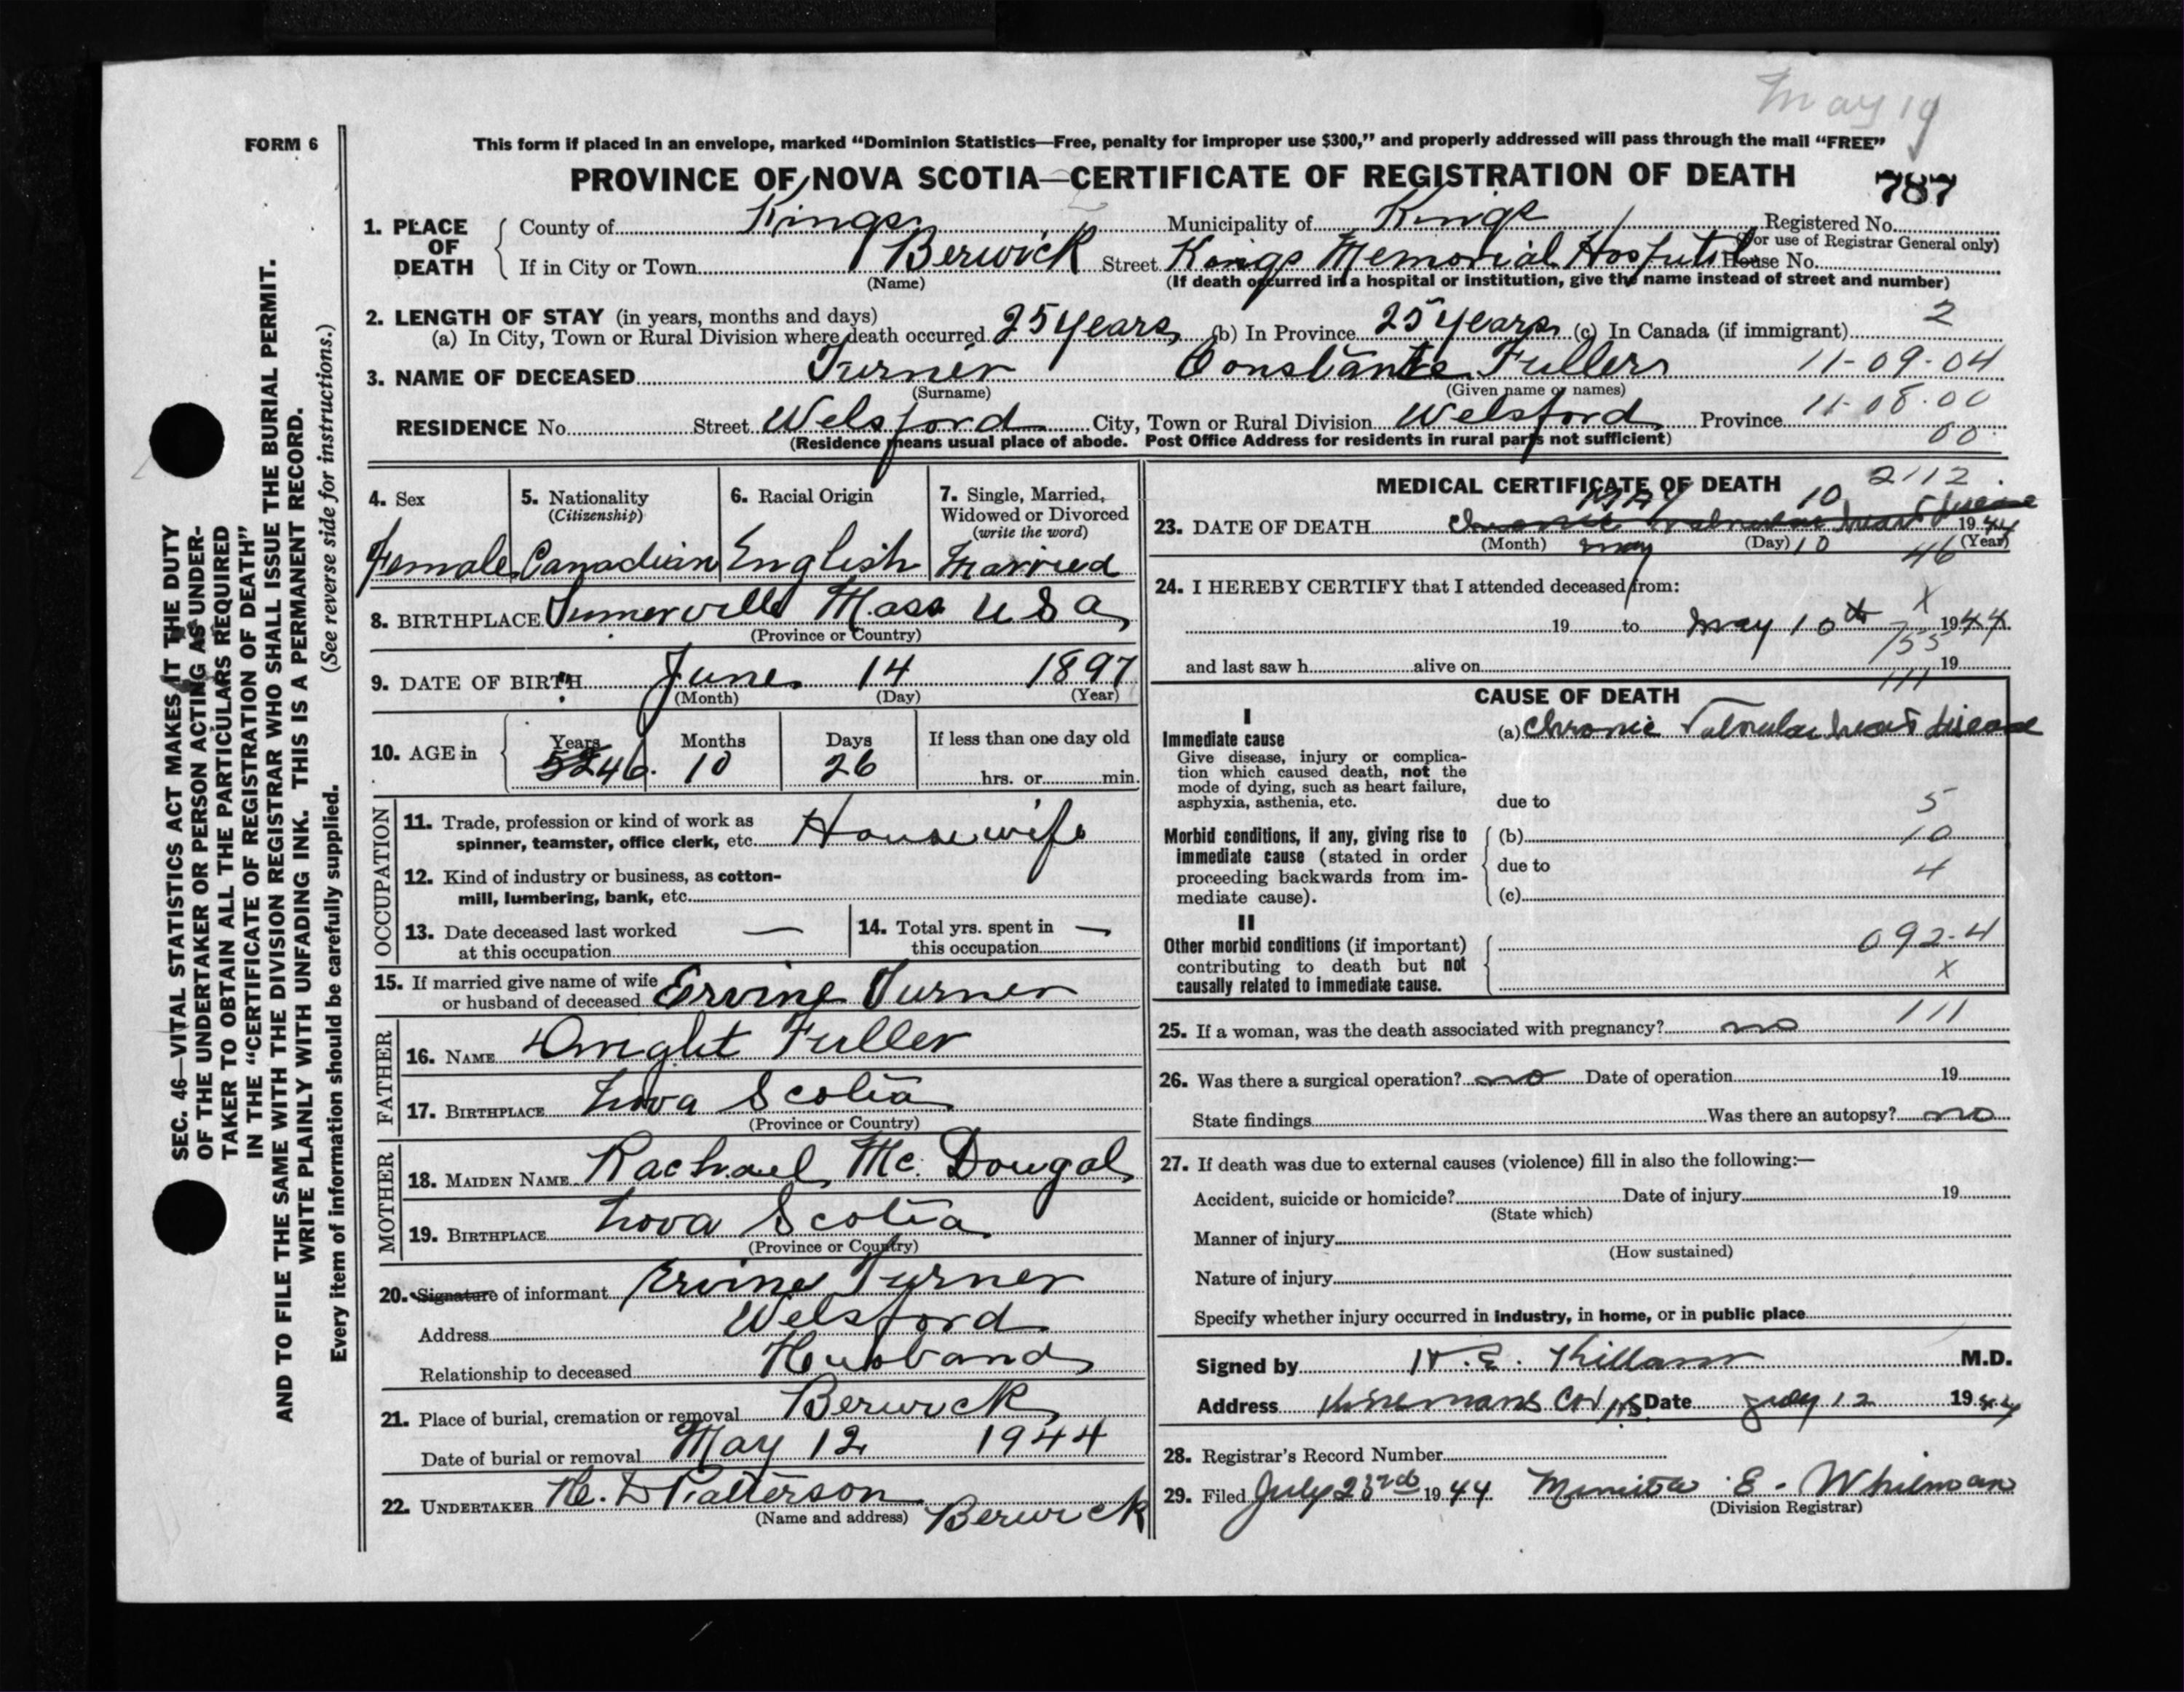 May 19
FORM 6
This form if placed in an envelope, marked “Dominion Statistics—Free, penalty for improper use $300,” and properly addressed will pass through the mail “FREE”
PROVINCE OF NOVA SCOTIA—CERTIFICATE OF REGISTRATION OF DEATH 787
1. PLACE OF DEATH County of Kings Municipality of Kings Registered No.
(For use of Registrar General only)
If in City or Town Berwick Street Kings Memorial Hospital House No.
(Name) (If death occurred in a hospital or institution, give the name instead of street and number)
2. LENGTH OF STAY (in years, months and days) 2
(a) In City, Town or Rural Division where death occurred 25 years (b) In Province 25 years (c) In Canada (if immigrant)
3. NAME OF DECEASED Turner Constante Fullers 11-09-04
(Surname) (Given name or names)
RESIDENCE No. Street Welsford City, Town or Rural Division Welsford Province 11-08-00
(Residence means usual place of abode. Post Office Address for residents in rural parts not sufficient) 00
4. Sex 5. Nationality (Citizenship) 6. Racial Origin 7. Single, Married, Widowed or Divorced (write the word)
Female Canadian English Married
8. BIRTHPLACE Sumerville Mass U S A
(Province or Country)
9. DATE OF BIRTH June 14 1897
(Month) (Day) (Year)
10. AGE in Years Months Days If less than one day old
52 46 10 26 hrs. or min.
OCCUPATION
11. Trade, profession or kind of work as spinner, teamster, office clerk, etc. Housewife
12. Kind of industry or business, as cotton-mill, lumbering, bank, etc.
13. Date deceased last worked at this occupation — 14. Total yrs. spent in this occupation —
15. If married give name of wife or husband of deceased Ervine Turner
FATHER
16. NAME Dwight Fuller
17. BIRTHPLACE Nova Scotia
(Province or Country)
MOTHER
18. MAIDEN NAME Rachael Mc. Dougal
19. BIRTHPLACE Nova Scotia
(Province or Country)
20. Signature of informant Ervine Turner
Address Welsford
Relationship to deceased Husband
21. Place of burial, cremation or removal Berwick
Date of burial or removal May 12 1944
22. UNDERTAKER H. D Patterson
(Name and address) Berwick
MEDICAL CERTIFICATE OF DEATH 2112
May 10
23. DATE OF DEATH chronic valvular heart disease 1944
(Month) May (Day) 10 (Year)
46
24. I HEREBY CERTIFY that I attended deceased from:
X
19 to May 10th 1944
755
and last saw h alive on 19
111
CAUSE OF DEATH
I
Immediate cause (a) Chronic Valvular heart disease
Give disease, injury or complication which caused death, not the mode of dying, such as heart failure, asphyxia, asthenia, etc.
due to 5
Morbid conditions, if any, giving rise to immediate cause (stated in order proceeding backwards from immediate cause).
(b) 10
due to 4
(c)
II
Other morbid conditions (if important) contributing to death but not causally related to immediate cause.
092-4
X
25. If a woman, was the death associated with pregnancy? no 111
26. Was there a surgical operation? no Date of operation 19
State findings Was there an autopsy? no
27. If death was due to external causes (violence) fill in also the following:—
Accident, suicide or homicide? Date of injury 19
(State which)
Manner of injury
(How sustained)
Nature of injury
Specify whether injury occurred in industry, in home, or in public place
Signed by H. E. Killam M.D.
Address Kinsmans Cor NS Date July 12 1944
28. Registrar's Record Number
29. Filed July 23rd 1944 E. Whitman
(Division Registrar)
SEC. 46—VITAL STATISTICS ACT MAKES IT THE DUTY
OF THE UNDERTAKER OR PERSON ACTING AS UNDER-
TAKER TO OBTAIN ALL THE PARTICULARS REQUIRED
IN THE “CERTIFICATE OF REGISTRATION OF DEATH”
AND TO FILE THE SAME WITH THE DIVISION REGISTRAR WHO SHALL ISSUE THE BURIAL PERMIT.
WRITE PLAINLY WITH UNFADING INK. THIS IS A PERMANENT RECORD.
Every item of information should be carefully supplied. (See reverse side for instructions.)